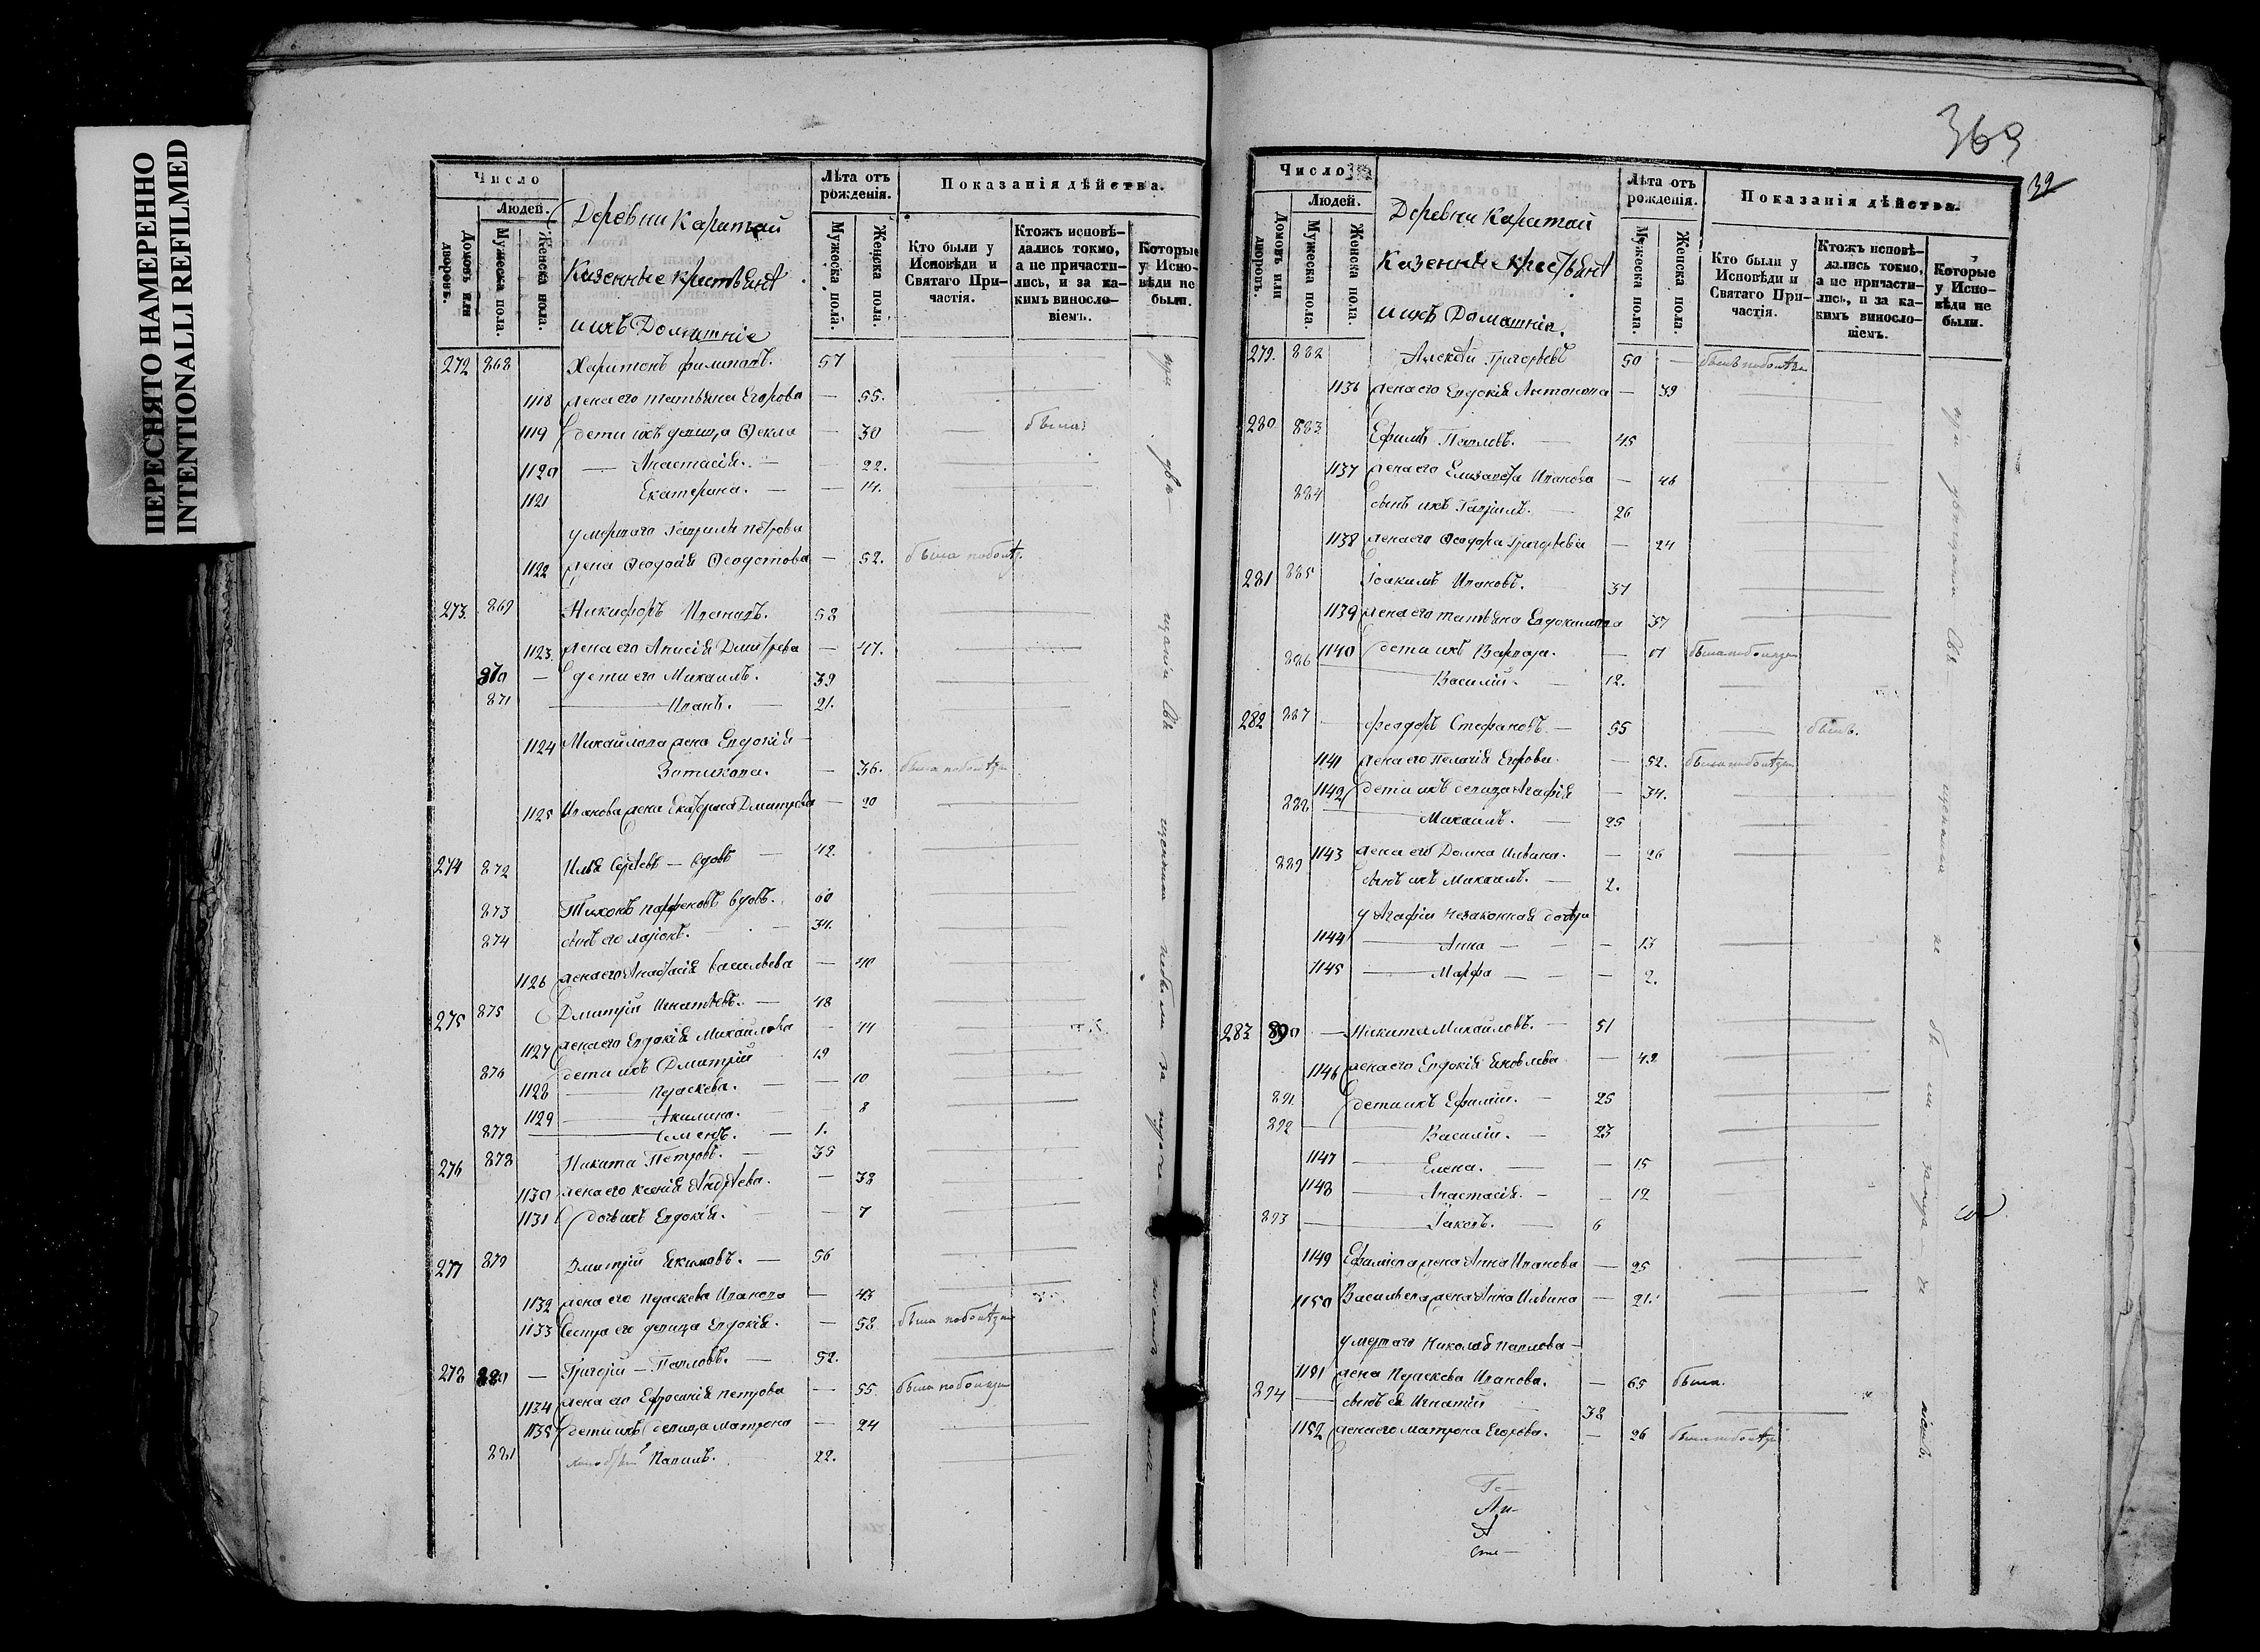 ПЕРЕСНЯТО НАМЕРЕННО
INTENTIONALLI REFILMED
Число
Людей.
Домовъ или дворовъ.
Мужеска пола.
Женска пола.
Деревни Каратай
Казенные крестьяне
и ихъ Домашніе
Лѣта отъ рожденія.
Мужеска пола.
Женска пола.
Показанія дѣйства.
Кто были у Исповѣди и Святаго При-частія.
Ктожъ исповѣ-дались токмо, а не причасти-лись, и за ка-кимъ виносло-віемъ.
Которые у Испо-вѣди не были.
272 868 Харитонъ Филиповъ. 57
1118 жена его татьяна Егорова — 55.
1119 дети ихъ девица Ѳекла — 30 была
1120 — Анастасія. — 22.
1121 Екатерина. — 14.
умершаго Гаврила петрова
1122 жена Ѳедосія Ѳедотова — 52. была поболѣз.
273. 869 Никифоръ Ивановъ. 58
1123. жена его Анисія Дмитрева — 47.
870 — дети его Михаилъ. 39
871 — Иванъ. — 21.
1124 Михайлова жена Евдокія
Зотикова. — 36. была поболѣзни
1125 Иванова жена Екатерина Дмитрева — 20
274 872 Илья Сергѣевъ — вдовъ — 42.
873 Тихонъ парфеновъ вдовъ. 60
874 сынъ его ларіонъ. — 34.
1126 жена его Анастасія васильева — 40
275 875 Дмитрій Игнатьевъ. — 48
1127 жена его Евдокія Михайлова — 44
876 дети ихъ Дмитрій 19
1128 — Праскева. — 10
1129 — Акилина. 8
877 — Семенъ. — 1.
276 878 Никита Петровъ. — 35
1130 жена его ксенія Андрѣева. — 38
1131 дочь ихъ Евдокія. — 7
277 879 Дмитрій Екимовъ. — 56
1132 жена его Праскева Иванова — 43
1133 Сестра его девица Евдокія. — 58 была поболѣзни
278 880 — Григорій — Павловъ. — 52.
1134 жена его Ефросинія петрова — 55. была поболѣзни
1135 дети ихъ девица матрона — 24
881 Павилъ. 22.
369
39
Число
Людей.
Домовъ или дворовъ.
Мужеска пола.
Женска пола.
Деревни Каратай
Казенные крестьяне
и ихъ Домашніе.
Лѣта отъ рожденія.
Мужеска пола.
Женска пола.
Показанія дѣйства.
Кто были у Исповѣди и Святаго При-частія.
Ктожъ исповѣ-дались токмо, а не причасти-лись, и за ка-кимъ виносло-віемъ.
Которые у Испо-вѣди не были.
279. 882 Алексѣй Григорьевъ 50 — былъ поболѣзни
1136 жена его Евдокія Антонова — 39
280 883 Ефимъ Павловъ. — 45
1137 жена его Елизавета Иванова — 46
884 сынъ ихъ Гавриилъ. — 26
1138 жена его Ѳеодора Григорьева — 24
281 885 Іоакимъ Ивановъ. 37
1139 жена его татьяна Евдокимова 37
1140 дети ихъ Варвара. — 17 была поболѣзни
886 — Василій. — 12.
282 887 — Феодоръ Стефановъ. — 55 былъ.
1141 жена его Пелагія Егорова. — 52. была поболѣзни
1142 дети ихъ девица Агафія — 34.
888 — Михаилъ. — 25
1143 жена его Домна Ильина. — 26
889 сынъ ихъ Михаилъ. — 2.
у Агафіи незаконная дочери
1144 — Анна — — — 13
1145 — Марфа — — — 2.
283 890 — Никита Михайловъ. — 51
1146 жена его Евдокія Яковлева — 49
891 дети ихъ Ефимій. — 25
892 — Василій. — 23
1147 — Елена. — — 15
1148 — Анастасія. — — 12
893 — Іаковъ. — 6
1149 Ефимьева жена Анна Иванова — 25
1150 Васильева жена Анна Ильина — 21.
умершаго Николая павлова —
1151 жена Праскева Иванова. — 65 была.
894 — сынъ ея Игнатій 38
1152 жена его матрона Егорова. — 26 была поболѣзни